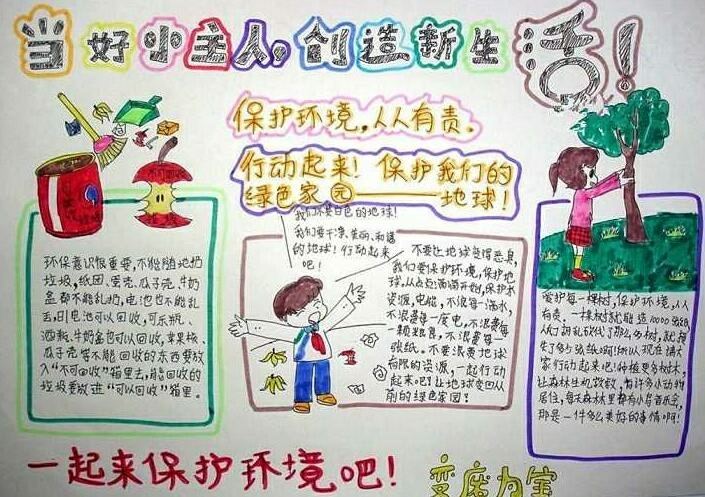 当好小主人,创造新生活!
保护环境,人人有责。
行动起来!保护我们的
绿色家园——地球!
我们不要白色的地球!
我们要干净、美丽、和谐
的地球!行动起来
吧!
环保意识很重要,不能随地扔
垃圾,纸团、蛋壳、瓜子壳、牛奶
盒都不能乱扔,电池也不能乱
丢,旧电池可以回收,可乐瓶、
酒瓶、牛奶盒也可以回收,苹果核、
瓜子壳等不能回收的东西要放
入“不可回收”箱里去,能回收的
垃圾要放进“可以回收”箱里。
不要让地球变得恶臭,
我们要保护环境,保护地
球,从点点滴滴开始,保护水
资源,电脑,不浪费一滴水,
不浪费一度电,不浪费每
一颗粮食,不浪费每一
张纸。不要浪费地球
有限的资源,一起行动
起来吧!让地球变回从
前的绿色家园!
爱护每一棵树,保护环境,人人
有责。一棵树就能造10000张纸
人们胡乱砍伐了那么多树,就
生了多少张纸啊!所以现在请大
家行动起来吧!种植更多树林,
让森林生机勃勃,有许多小动物
居住,每天森林里都有小鸟音乐会,
那是一件多么美好的事情啊!
一起来保护环境吧!
变废为宝